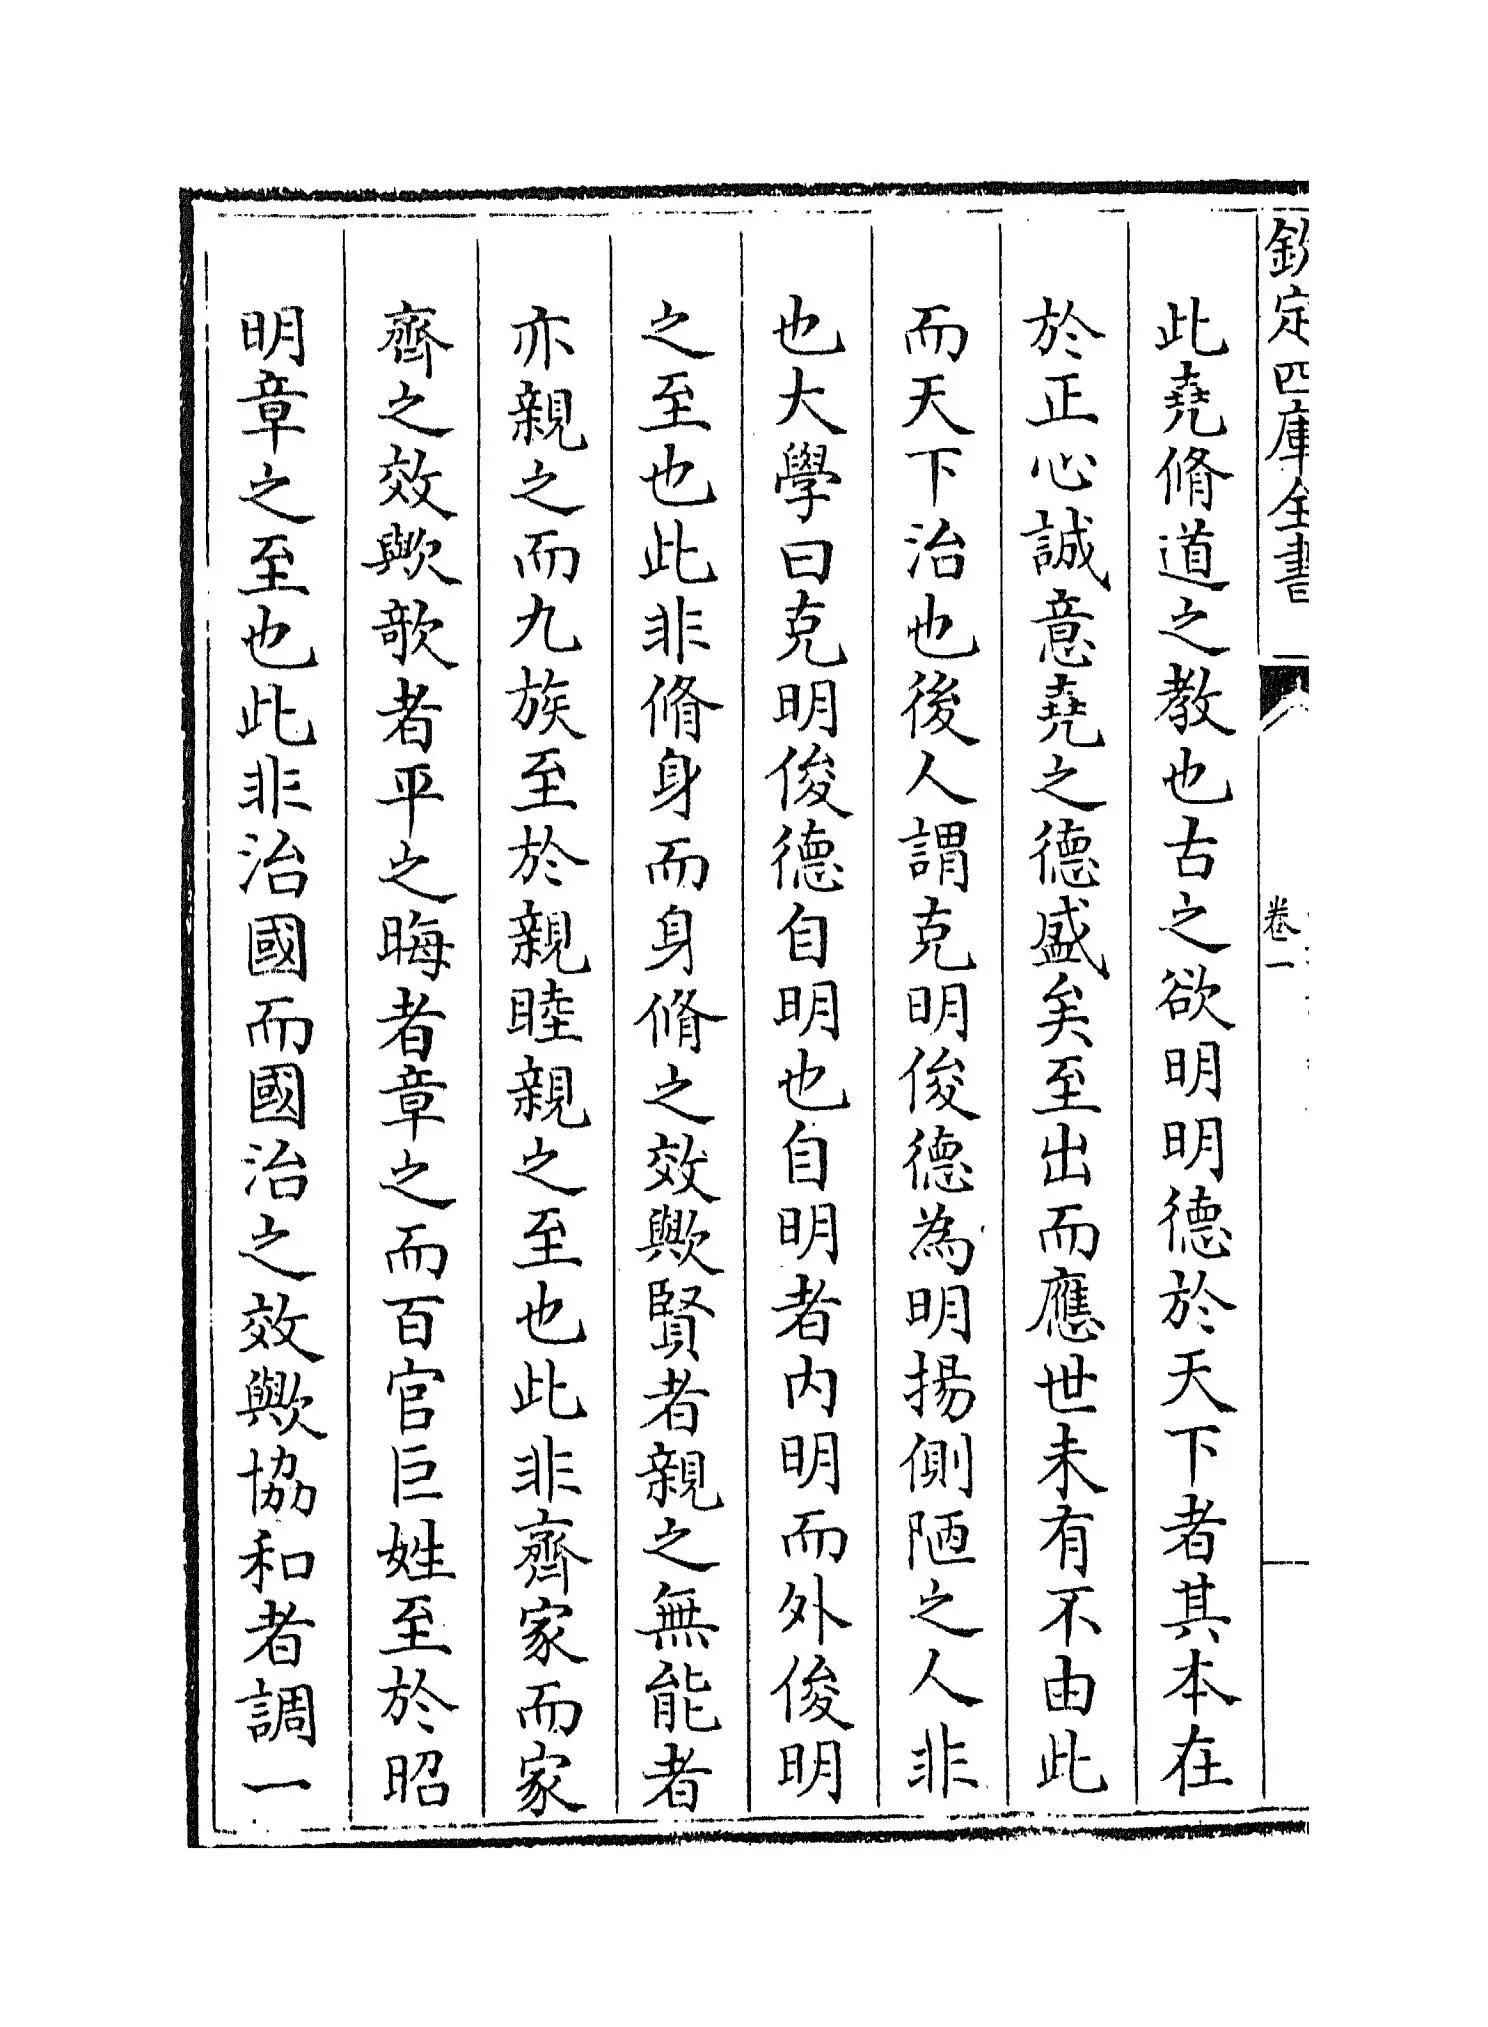 欽定四庫全書
卷一
此堯脩道之教也古之欲明明德於天下者其本在
於正心誠意堯之德盛矣至出而應世未有不由此
而天下治也後人謂克明俊德為明揚側陋之人非
也大學曰克明俊德自明也自明者内明而外俊明
之至也此非脩身而身脩之效歟賢者親之無能者
亦親之而九族至於親睦親之至也此非齊家而家
齊之效歟欹者平之晦者章之而百官巨姓至於昭
明章之至也此非治國而國治之效歟協和者調一